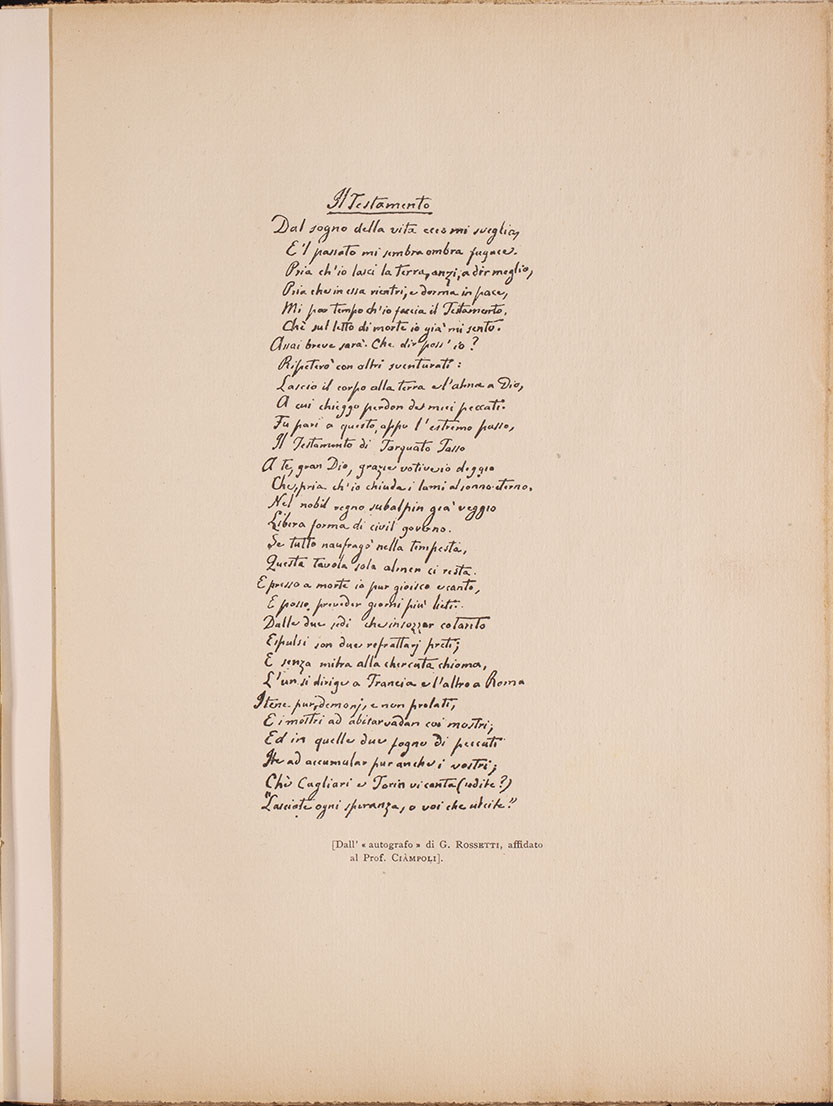 Il Testamento
Dal sogno della vita ecco mi sveglio,
E'l passato mi sembra ombra fugace.
Pria ch'io lasci la terra, anzi, a dir meglio,
Pria che in essa rientri, e dorma in pace,
Mi par tempo ch'io faccia il Testamento,
Chè sul letto di morte io già mi sento.
Assai breve sarà. Che dir poss' io?
Ripeterò con altri sventurati:
Lascio il corpo alla terra e l'alma a Dio,
A cui chieggo perdon de' miei peccati.
Fu pari a questo, appo l'estremo passo,
Il Testamento di Torquato Tasso
A te, gran Dio, grazie votive io deggio
Che, pria ch'io chiuda i lumi al sonno eterno,
Nel nobil regno subalpin già veggio
Libera forma di civil governo.
Se tutto naufragò nella tempesta,
Questa tavola sola almen ci resta.
E presso a morte io pur gioisco e canto,
E posso preveder giorni più lieti.
Dalle due sedi che insozzar cotanto
Espulsi son due refrattarj preti;
E senza mitra alla chercuta chioma,
L'un si dirige a Francia e l'altro a Roma
Itene pur, demonj, e non prelati,
E i mostri ad abitar vadan coi mostri;
Ed in quelle due fogne di peccati
Ite ad accumular pur anche i vostri;
Chè Cagliari e Torin vi canta (udite?)
"Lasciate ogni speranza, o voi che uscite!"
[Dall' « autografo » di G. ROSSETTI, affidato
al Prof. CIÀMPOLI].